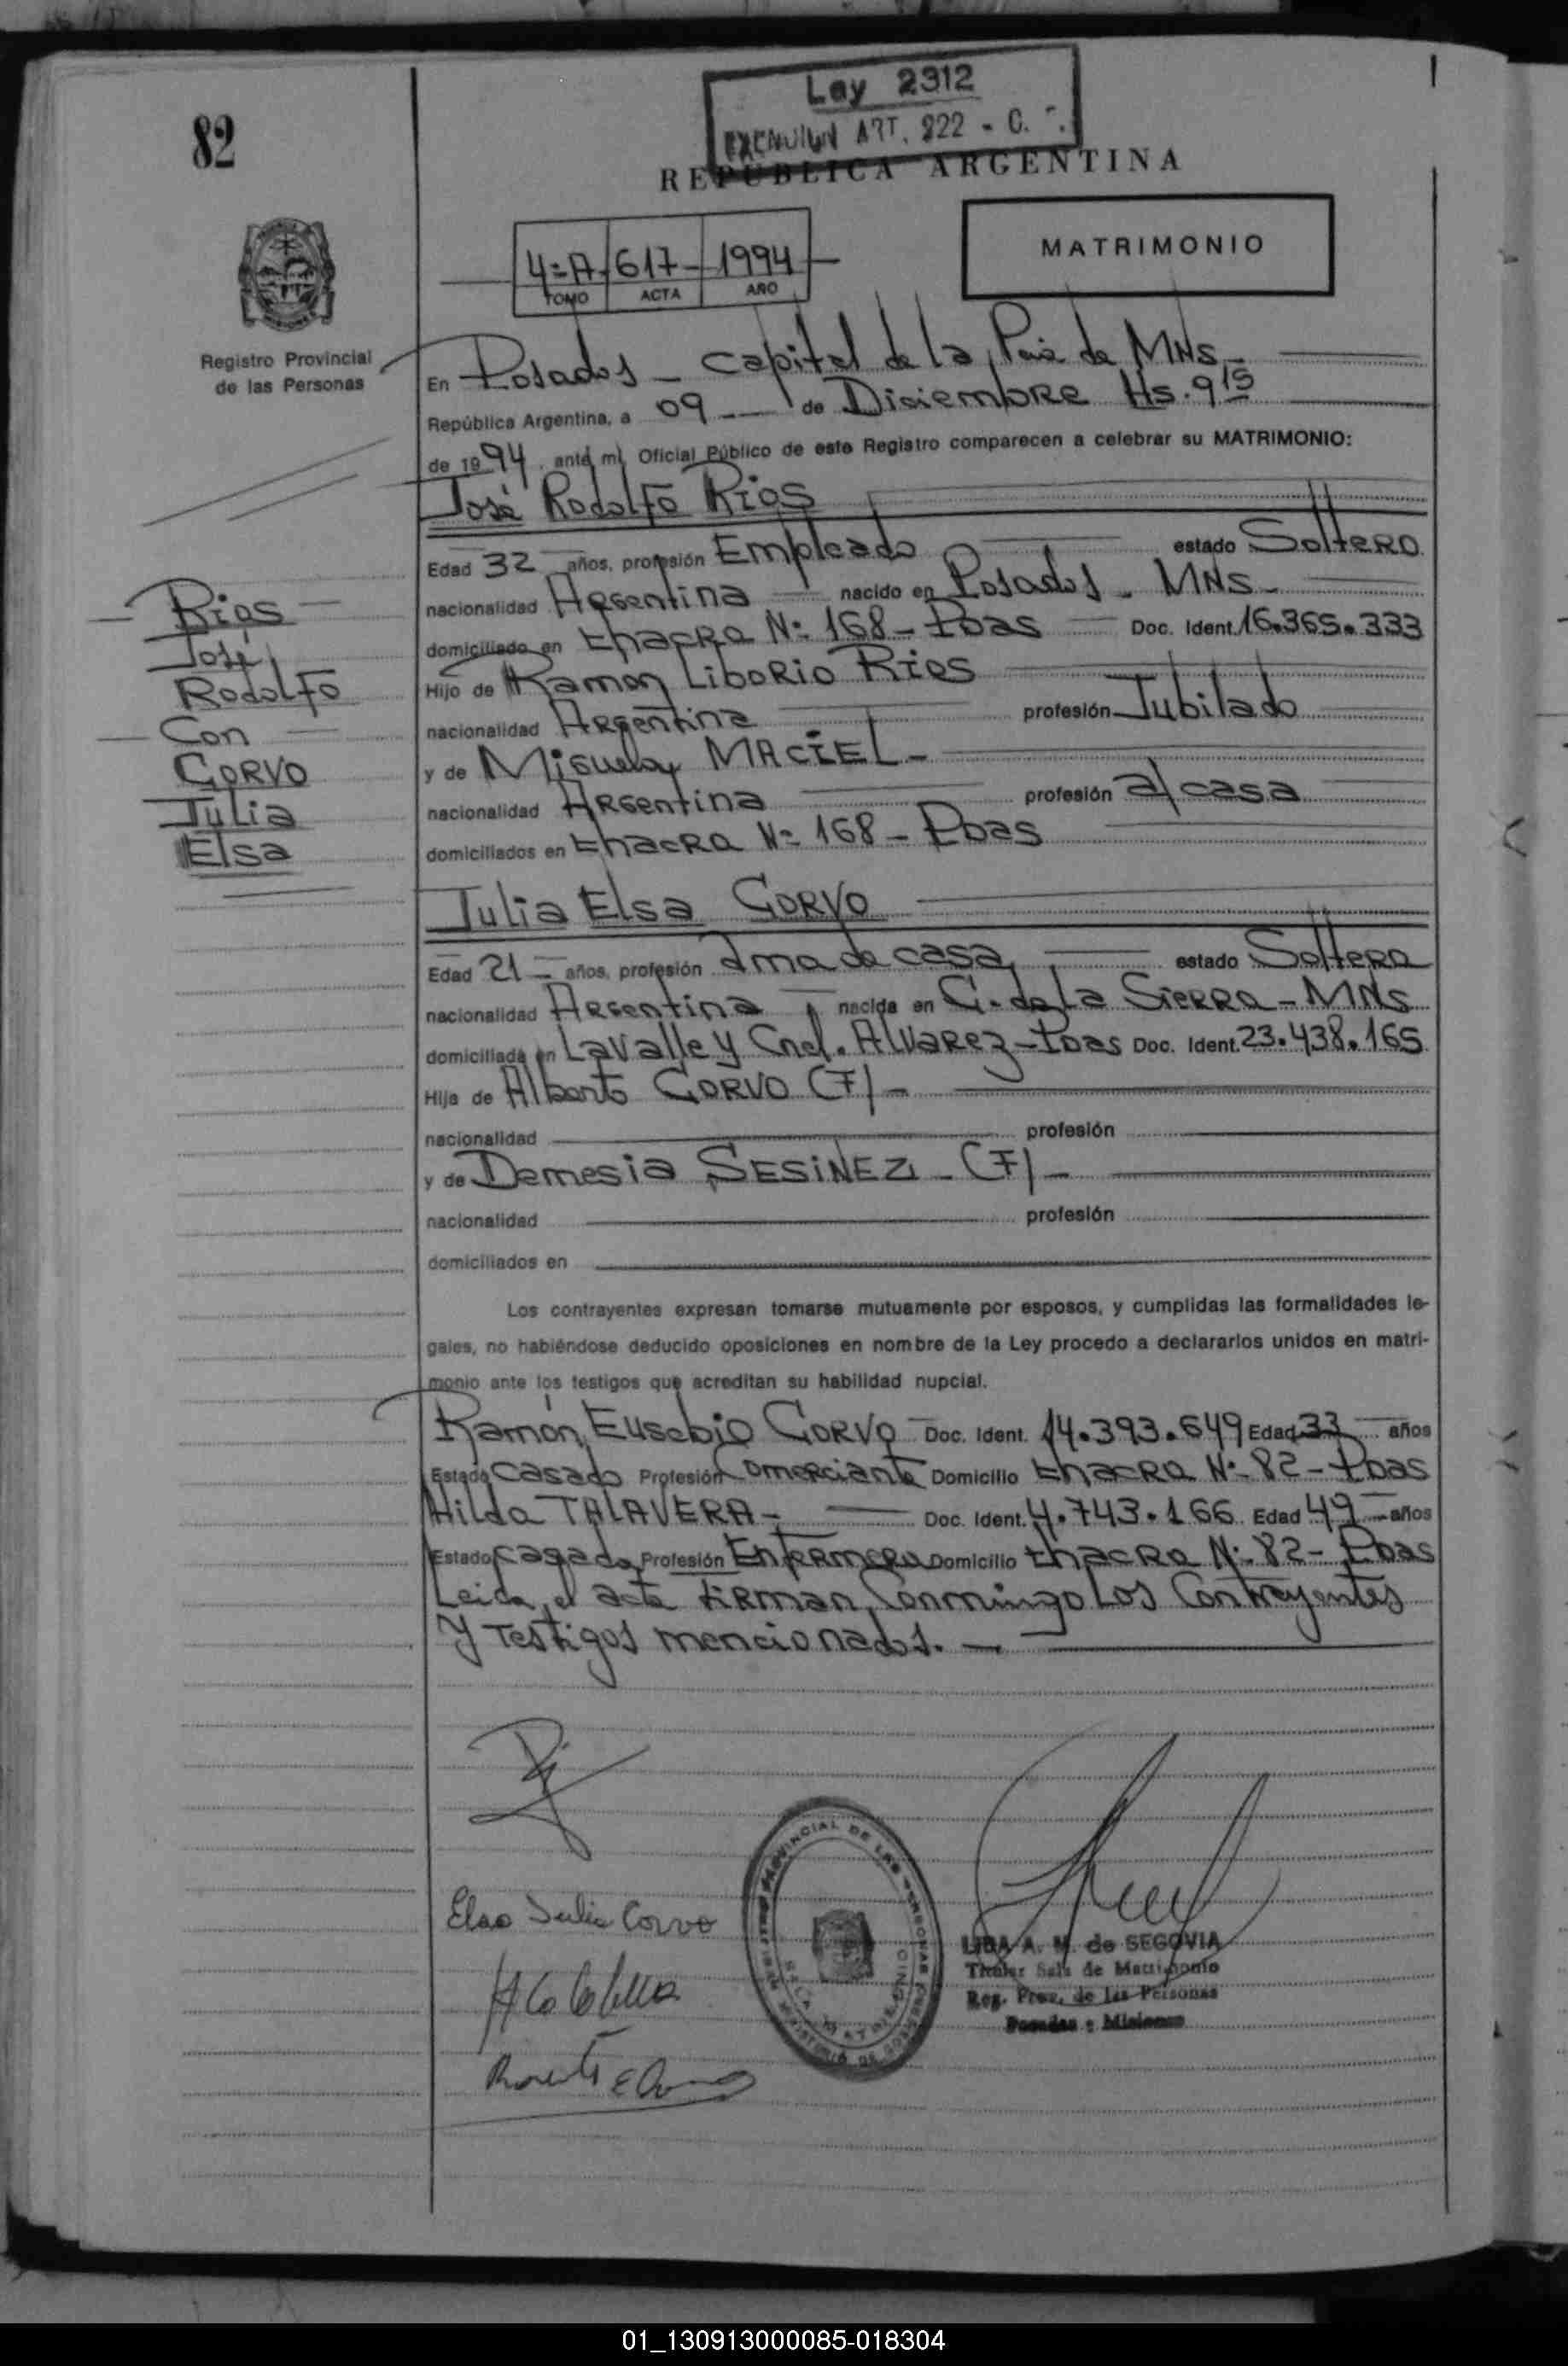 Ley 2312
ART. 222 - C.
82
REPÚBLICA ARGENTINA
MATRIMONIO
4=A- 617- 1994
TOMO ACTA AÑO
Registro Provincial
de las Personas
En Posadas - Capital de la Pcia de MNs -
República Argentina, a 09 de Diciembre Hs. 9 15
de 1994, ante mi Oficial Público de este Registro comparecen a celebrar su MATRIMONIO:
José Rodolfo Rios
Edad 32 años, profesión Empleado estado Soltero
nacionalidad Argentina nacido en Posadas - MNs -
domiciliado en Chacra Nº 168 - Pdas Doc. Ident. 16.365.333
Hijo de Ramon Liborio Rios
nacionalidad Argentina profesión Jubilado
y de Miguela MACIEL -
nacionalidad Argentina profesión a/casa
domiciliados en Chacra Nº 168 - Pdas
Rios
José
Rodolfo
Con
CORVO
Julia
Elsa
Julia Elsa CORVO
Edad 21 años, profesión ama de casa estado Soltera
nacionalidad Argentina nacida en C. de la Sierra - MNs
domiciliada en Lavalle y Cnel. Alvarez - Pdas Doc. Ident. 23.438.165
Hija de Alberto CORVO (F) -
nacionalidad profesión
y de Demesia SESiNEZ - (F) -
nacionalidad profesión
domiciliados en
Los contrayentes expresan tomarse mutuamente por esposos, y cumplidas las formalidades le-
gales, no habiéndose deducido oposiciones en nombre de la Ley procedo a declararlos unidos en matri-
monio ante los testigos que acreditan su habilidad nupcial.
Ramón Eusebio CORVO Doc. Ident. 14.393.649 Edad 33 años
Estado Casado Profesión Comerciante Domicilio Chacra Nº 82 - Pdas
Hilda TALAVERA - Doc. Ident. 4.743.166 Edad 49 años
Estado Casada Profesión Enfermera Domicilio Chacra Nº 82 - Pdas
Leida el acta firman Conmingo Los Contrayentes
y testigos mencionados. -
Elsa Julia Corvo
LIDA A. M. de SEGOVIA
Titular Sala de Matrimonio
Reg. Prov. de las Personas
Posadas - Misiones
01_130913000085-018304